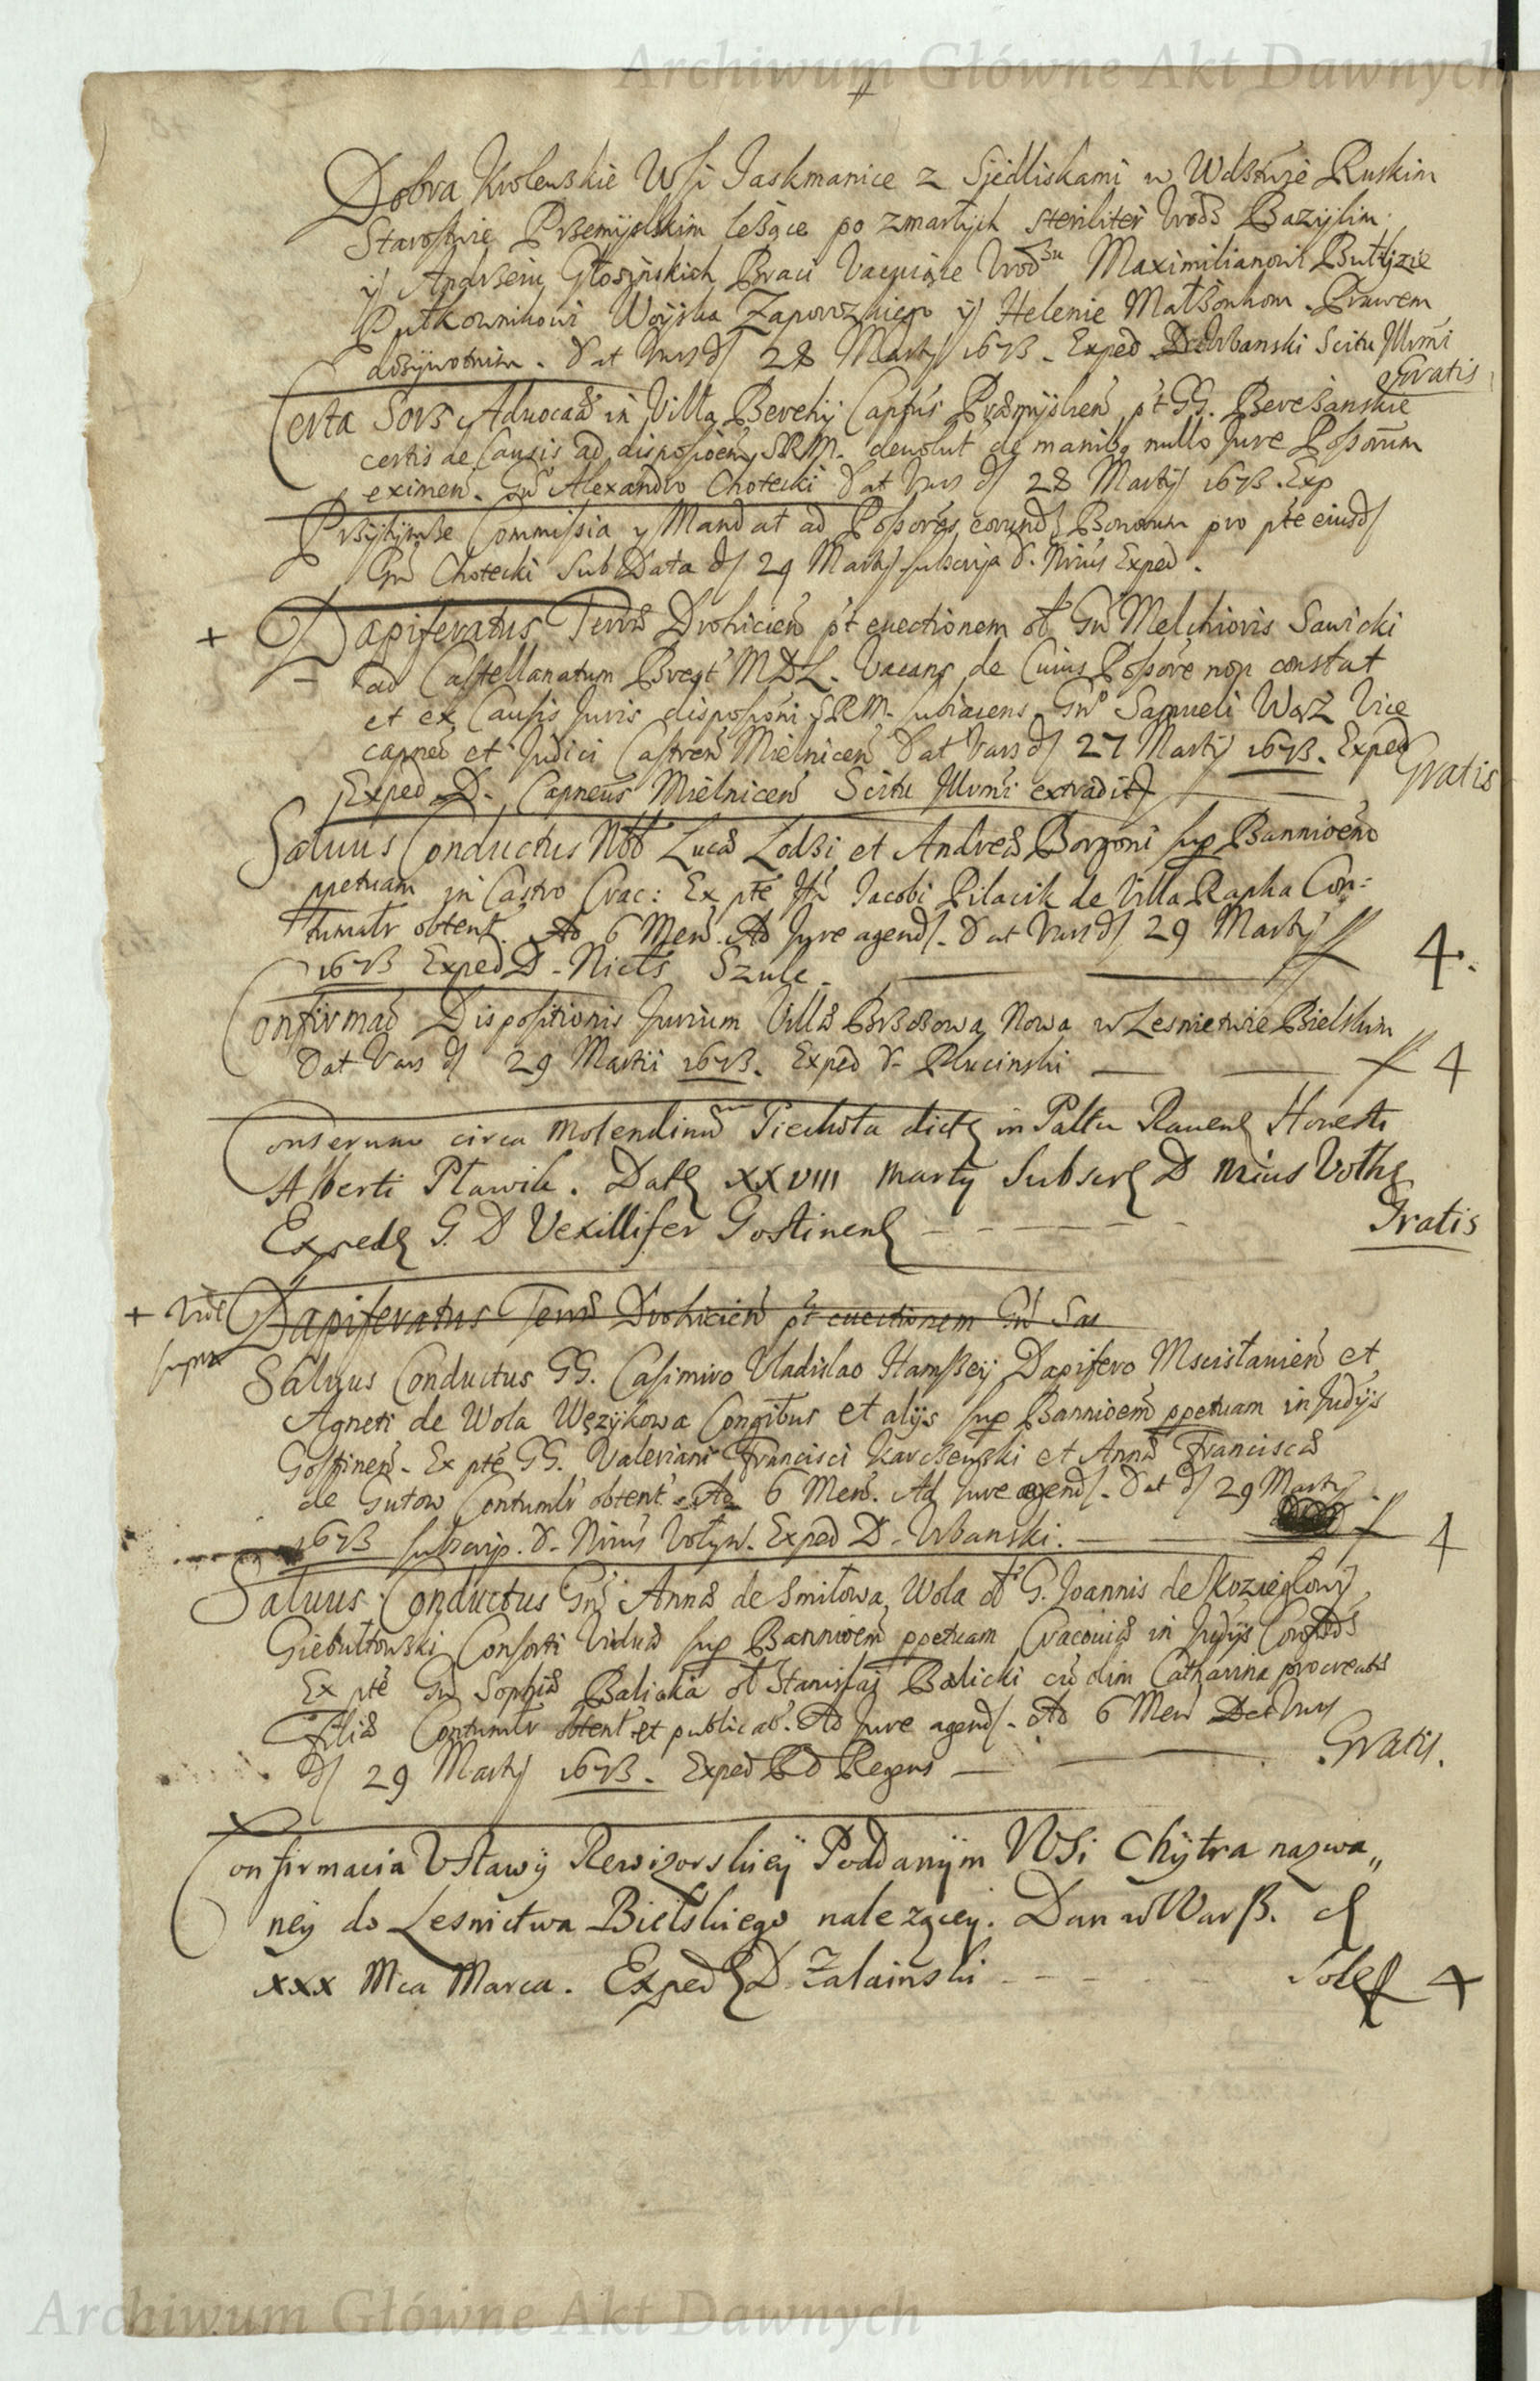 Archiwum Główne Akt Dawnych
Dobra Krolewskie Wsi Jaskmanice z Siedliskami w Wdztwie Ruskim
Starostwie Przemyslskim leżące po zmarłych steriliter Urodz Bazylim
y Andrzeiu Głosinskich Braci Vacuiące Urodzu Maximilianowi Bułyzie
Pułkownikowi Woyska Zaporozkiego y Helenie Małżonkom Prawem
dożywotnim. Dat Vars d 28 Martij 1673. Exped D. Urbanski Scitu Illmi
Gratis
Certa Sors Advocatiae in Villa Berehy Captus Praemyslien pt GG. Bereżanskie
certis de Causis ad disposioem SRM. devolut de manibq nullo Jure Possorum
eximen. Gn Alexandro Chotecki Dat Vars d 28 Martij 1673. Exp
Przytymże Commissia y Mandat ad Possores eorund Bonorum pro pte eiusd
Gn Chotecki Sub Data d 29 Martij subscrip D. Nrius Exped.
+ Dapiferatus Terrae Drohicien pt euectionem ol Gn Melchioris Sawicki
ad Castellanatum Brest MDL. Vacans de Cuius Possore non constat
et ex Causis Juris disposioni SRM. subiacens Gno Samueli Wąż Vice
capneo et Judici Castren Mielnicen Dat Vars d 27 Martij 1673. Exped
Gratis
Exped D. Capneus Mielnicen Scitu Illmi extradit
Saluus Conductus Nbb Lucae Lodzi et Andreae Borzoni sup Bannioem
ppetuam in Castro Crac: Ex pte Hn Jacobi Pilacik de Villa Rapka Con=
tumatr obtent. Ad 6 Men. Ad Jure agend. Dat Vars d 29 Martij f 4.
1673 Exped D. Niels Szulc
Confirmao Dispositionis Jurium Villae Brzozowa Nowa w Lesnictwie Bielskim
Dat Vars d 29 Martii 1673. Exped D. Plucinski f 4
Conseruao circa Molendinu Piechota dict in Pałtu Rauen Honesti
Alberti Pławik. Dat XXVIII Martij Subscr D Nrius Voth
Exped G. D Vexillifer Gostinen
Gratis
+ Vide
supra
Dapiferatus Terrae Drohicien pt euectionem Gn Sa
Saluus Conductus GG. Casimiro Vladislao Hampszey Dapifero Mscislauien et
Agneti de Wola Wężykowa Congibus et alijs sup Bannioem ppetuam in Judijs
Gostinen. Ex pte GG. Valeriani Francisci Karczewski et Annae Franciscae
de Gutow Contumlr obtent. Ad 6 Men. Ad Jure agend. Dat d 29 Martij
1673 subscrip. D. Nrius Volyn. Exped D. Urbanski. f 4
Saluus Conductus Gn Annae de Smilowa Wola ol G. Joannis de Kozieglowy
Giebultowski Consorti Viduae sup Bannioem ppetuam Cracouiae in Judijs
Ex pte Gn Sophiae Balicka ol Stanislai Balicki cu olim Catharina procreatae
Filiae Contumlr obtent et publicat. Ad Jure agend. Ad 6 Men Dat Vars
d 29 Martij 1673. Exped RD Regens
Gratis.
Confirmacia Ustawy Rewizorskiey Poddanym Wsi Chytra nazwa„
ney do Lesnictwa Bielskiego należącey. Dan w Warß. d
xxx Mca Marca. Exped D Zalainski Sol f 4
Archiwum Główne Akt Dawnych